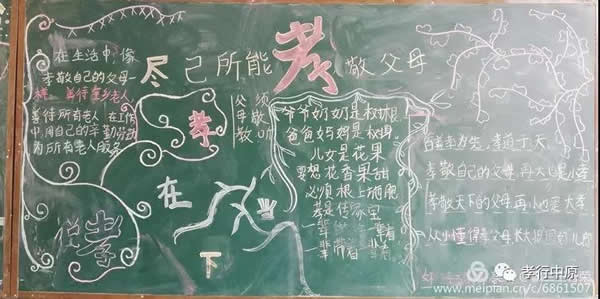 尽己所能孝敬父母
在生活中,像
孝敬自己的父母一
样,善待
善待所有老人,在工作
中,用自己的辛勤劳动
为所有老人服务
说孝
孝
在
当
下
父母教
须敬听
爷爷奶奶是树根
爸爸妈妈是树身。
儿女是花果
要想花香果甜
必须根上施肥
孝是传家宝
一辈
辈
百善孝为先,孝道大于天,
孝敬自己的父母再大也是小孝
孝敬天下的父母再小也是大孝
从小懂得孝父母长大
孝行中原
www.meipian.cn/c/6861507